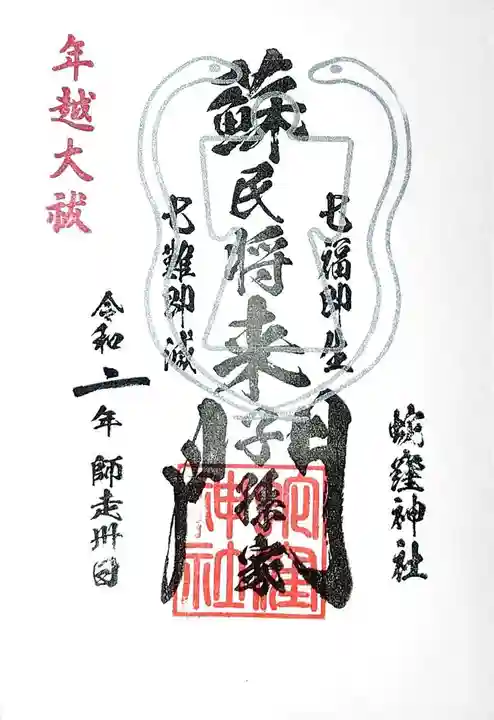 七福即生
蘇民将来子孫家門
七難即滅
蛇窪神社
年越大祓
令和二年 師走卅日
蛇窪神社